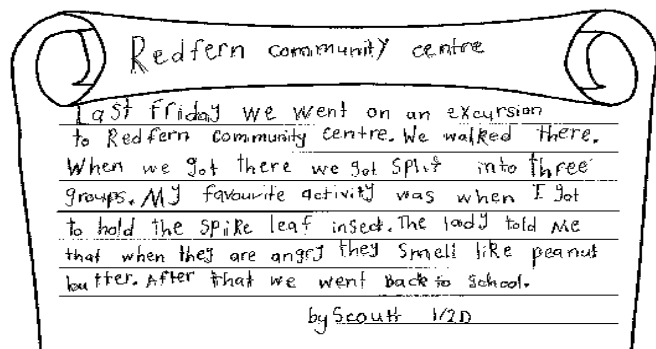 Redfern community centre
Last Friday we went on an excursion
to Redfern community centre. We walked there.
When we got there we got split into three
groups. My favourite activity was when I got
to hold the spike leaf insect. The lady told me
that when they are angry they smell like peanut
butter. After that we went Back to school.
by Scoutt 1/2D